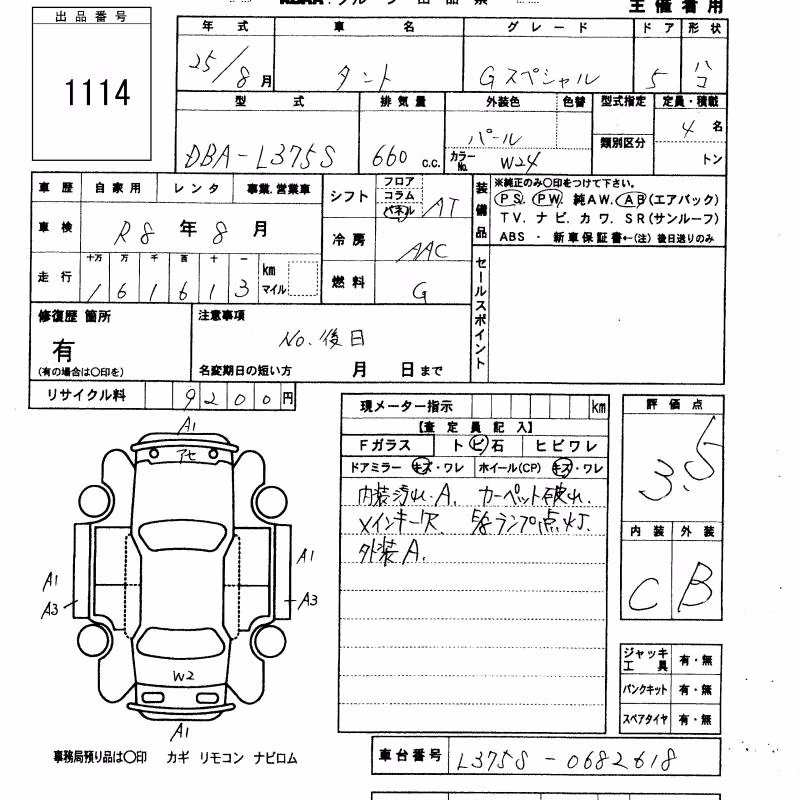 主催者用
出品番号
1114
年式 車名 グレード ドア 形状
25/8月 タント Gスペシャル 5 ハコ
型式 排気量 外装色 色替 型式指定 定員・積載
DBA-L375S 660 c.c. パール 類別区分 4名
カラーNo. W24 トン
車歴 自家用 レンタ 事業.営業車
車検 R8年8月
走行 十万 万 千 百 十 一
1 6 1 6 1 3 km マイル
シフト フロア コラム パネル AT
冷房 AAC
燃料 G
装備品
※純正のみ〇印をつけて下さい。
PS. PW. 純AW. AB(エアバック)
TV. ナビ. カワ. SR(サンルーフ)
ABS ・ 新車保証書←(注)後日送りのみ
セールスポイント
修復歴 箇所
有
(有の場合は〇印を)
注意事項
No.後日
名変期日の短い方 月 日まで
リサイクル料 9200円
現メーター指示 km
【査定員記入】
Fガラス トビ石 ヒビワレ
ドアミラー キズ・ワレ ホイール(CP) キズ・ワレ
内装汚れ.A. カーペット破れ.
メインキー欠. ランプ点灯.
外装A.
評価点
3.5
内装 外装
C B
A1
アセ
A1 A1
A3 A3
W2
A1
ジャッキ工具 有・無
パンクキット 有・無
スペアタイヤ 有・無
事務局預り品は〇印 カギ リモコン ナビロム
車台番号 L375S-0682618